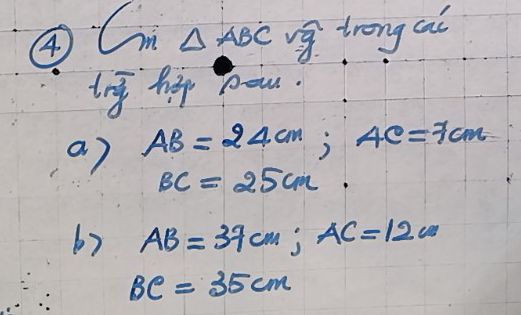 ④ Cm Δ ABC vg̃ trong các
trg̃ hợp sau.
a) AB = 24cm ; AC = 7cm
BC = 25cm
b) AB = 37cm ; AC = 12cm
BC = 35cm